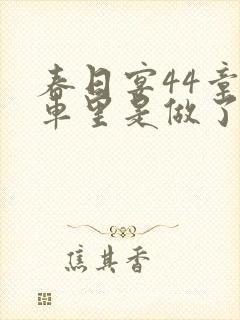 春日宴44章
车里是做了
焦其香